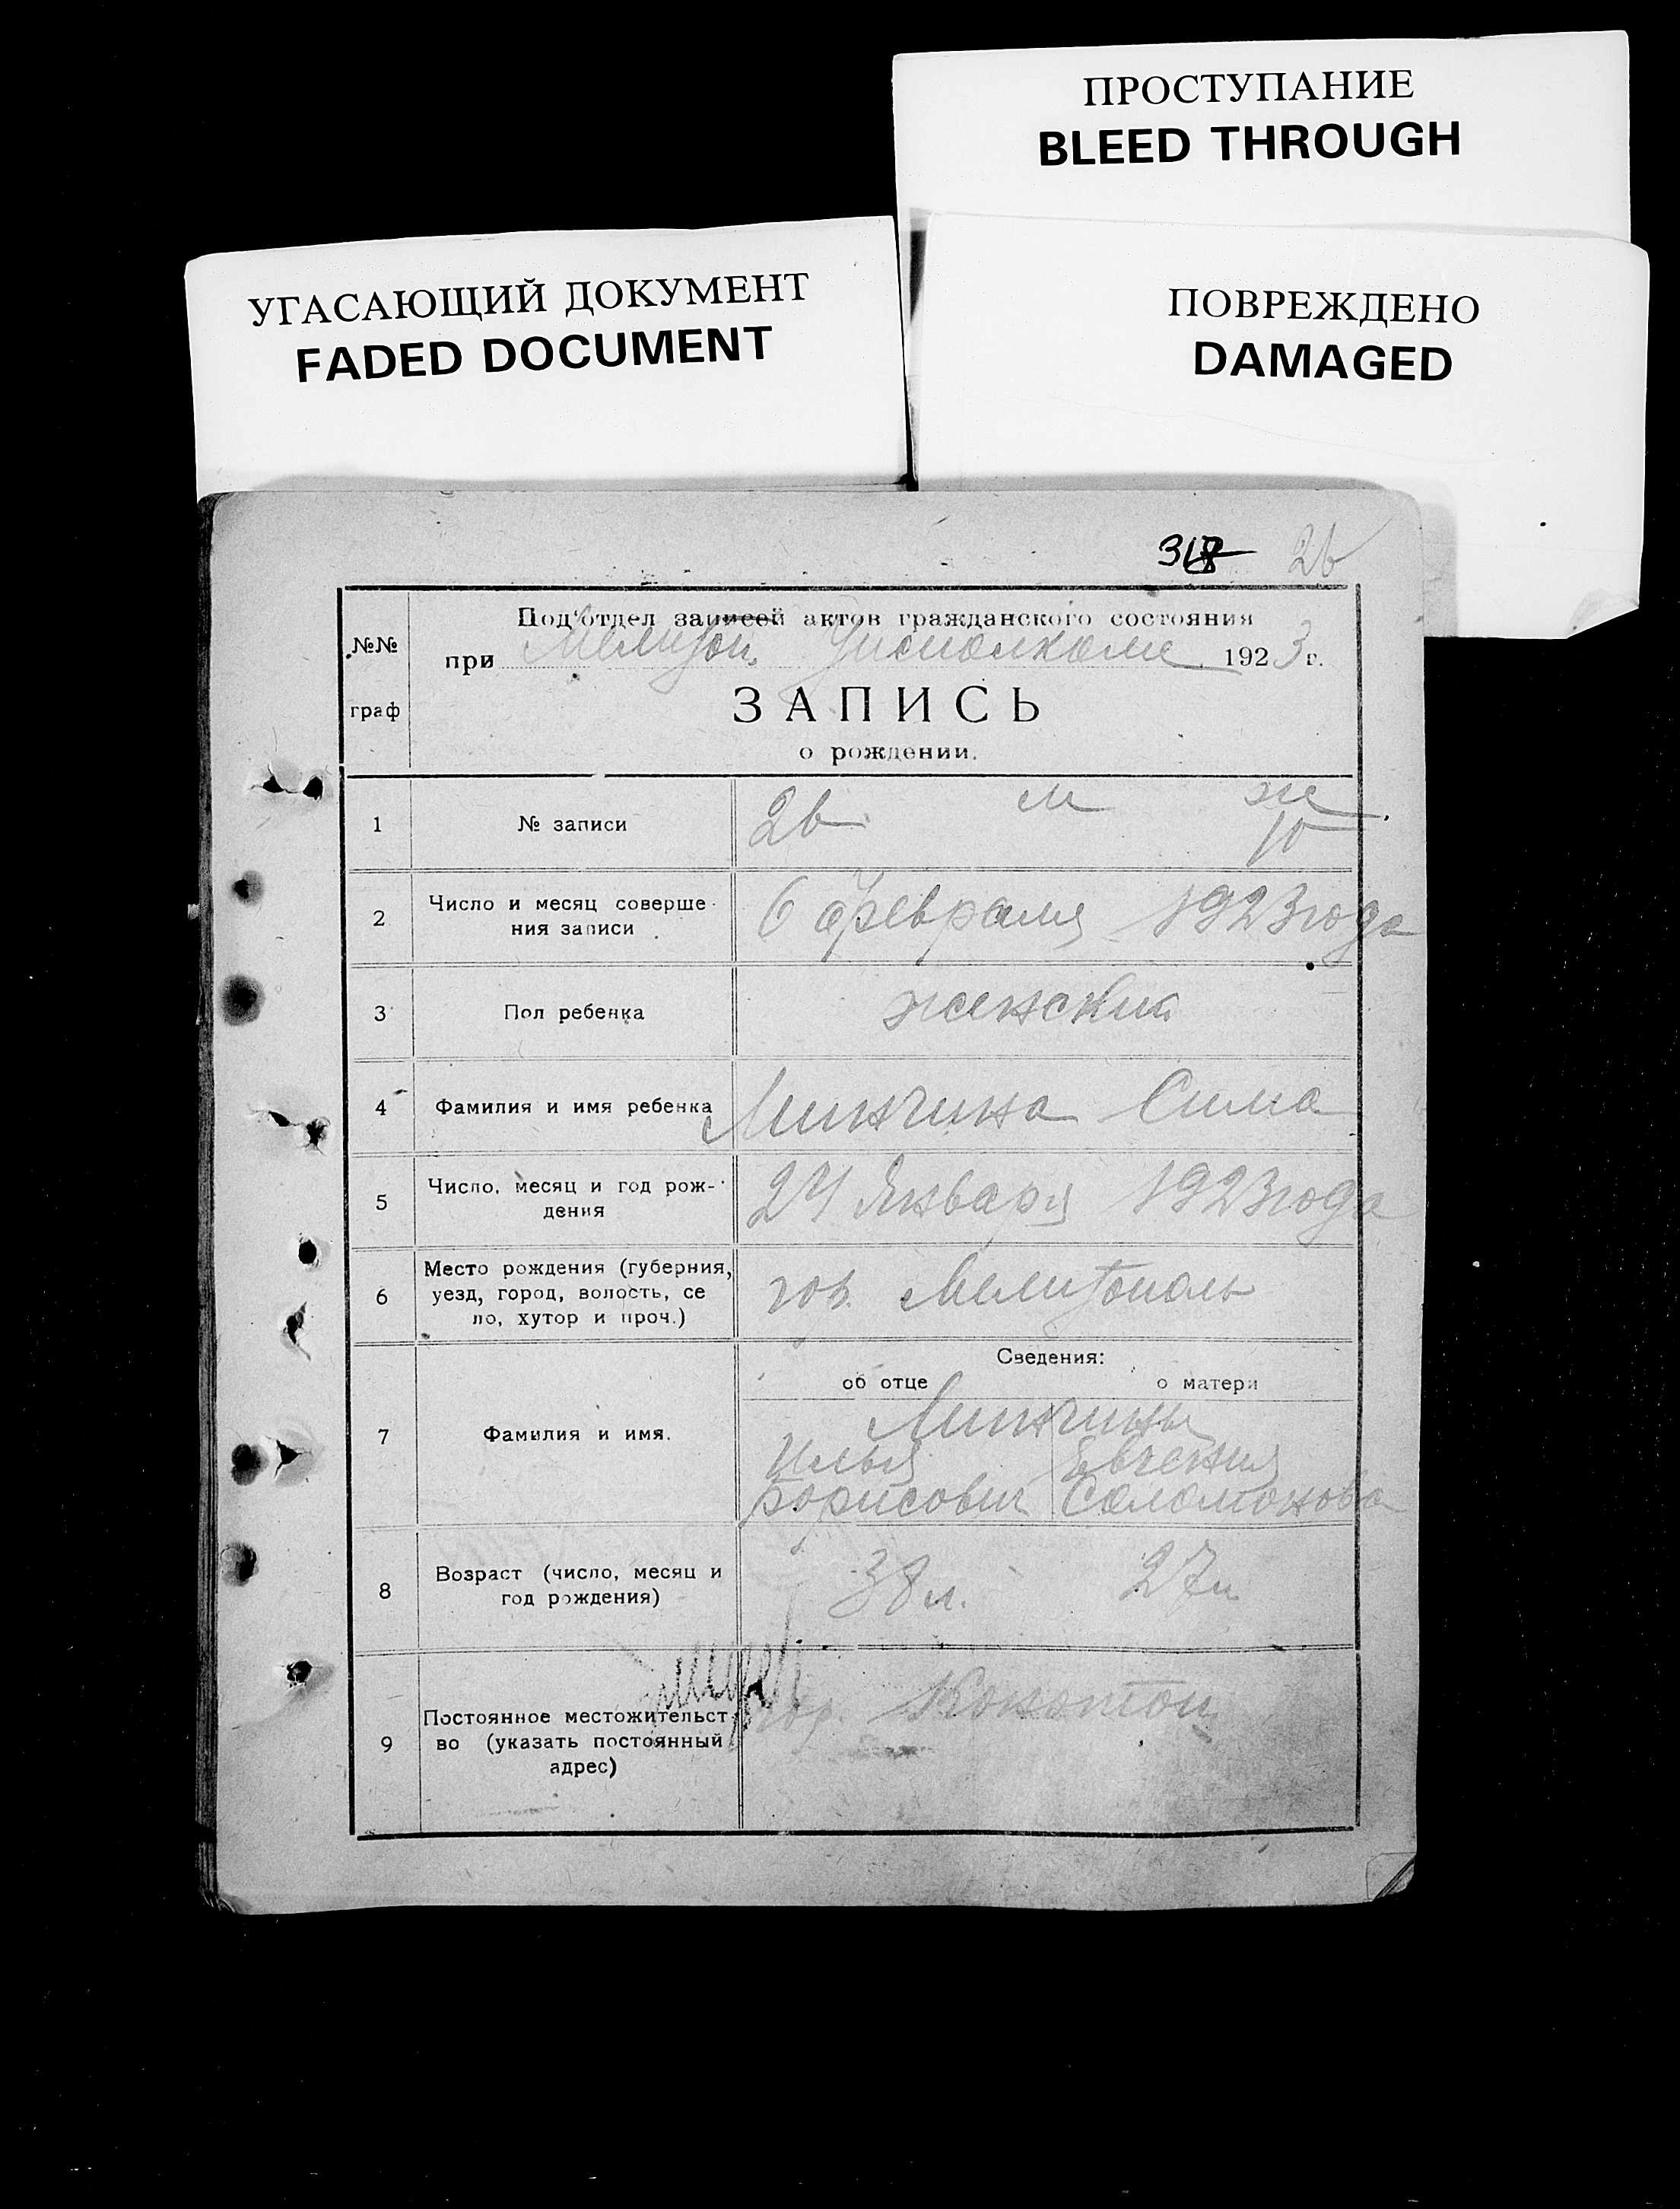 ПРОСТУПАНИЕ
BLEED THROUGH
УГАСАЮЩИЙ ДОКУМЕНТ
FADED DOCUMENT
ПОВРЕЖДЕНО
DAMAGED
26
№№
граф
Под'отдел записей актов гражданского состояния
при Мелитоп. Уисполкоме 1923 г.
ЗАПИСЬ
о рождении.
1
№ записи
26 м ж
10
2
Число и месяц соверше-
ния записи
6 февраля 1923 года
3
Пол ребенка
женский
4
Фамилия и имя ребенка
Минчина Сима
5
Число, месяц и год рож-
дения
24 Января 1923 года
6
Место рождения (губерния,
уезд, город, волость, се
ло, хутор и проч.)
гор. Мелитополь
Сведения:
об отце о матери
7
Фамилия и имя.
Минчины
Илья Евгения
Борисович Соломонова
8
Возраст (число, месяц и
год рождения)
38 л. 27 л.
9
Постоянное местожительст-
во (указать постоянный
адрес)
гор. Конотоп